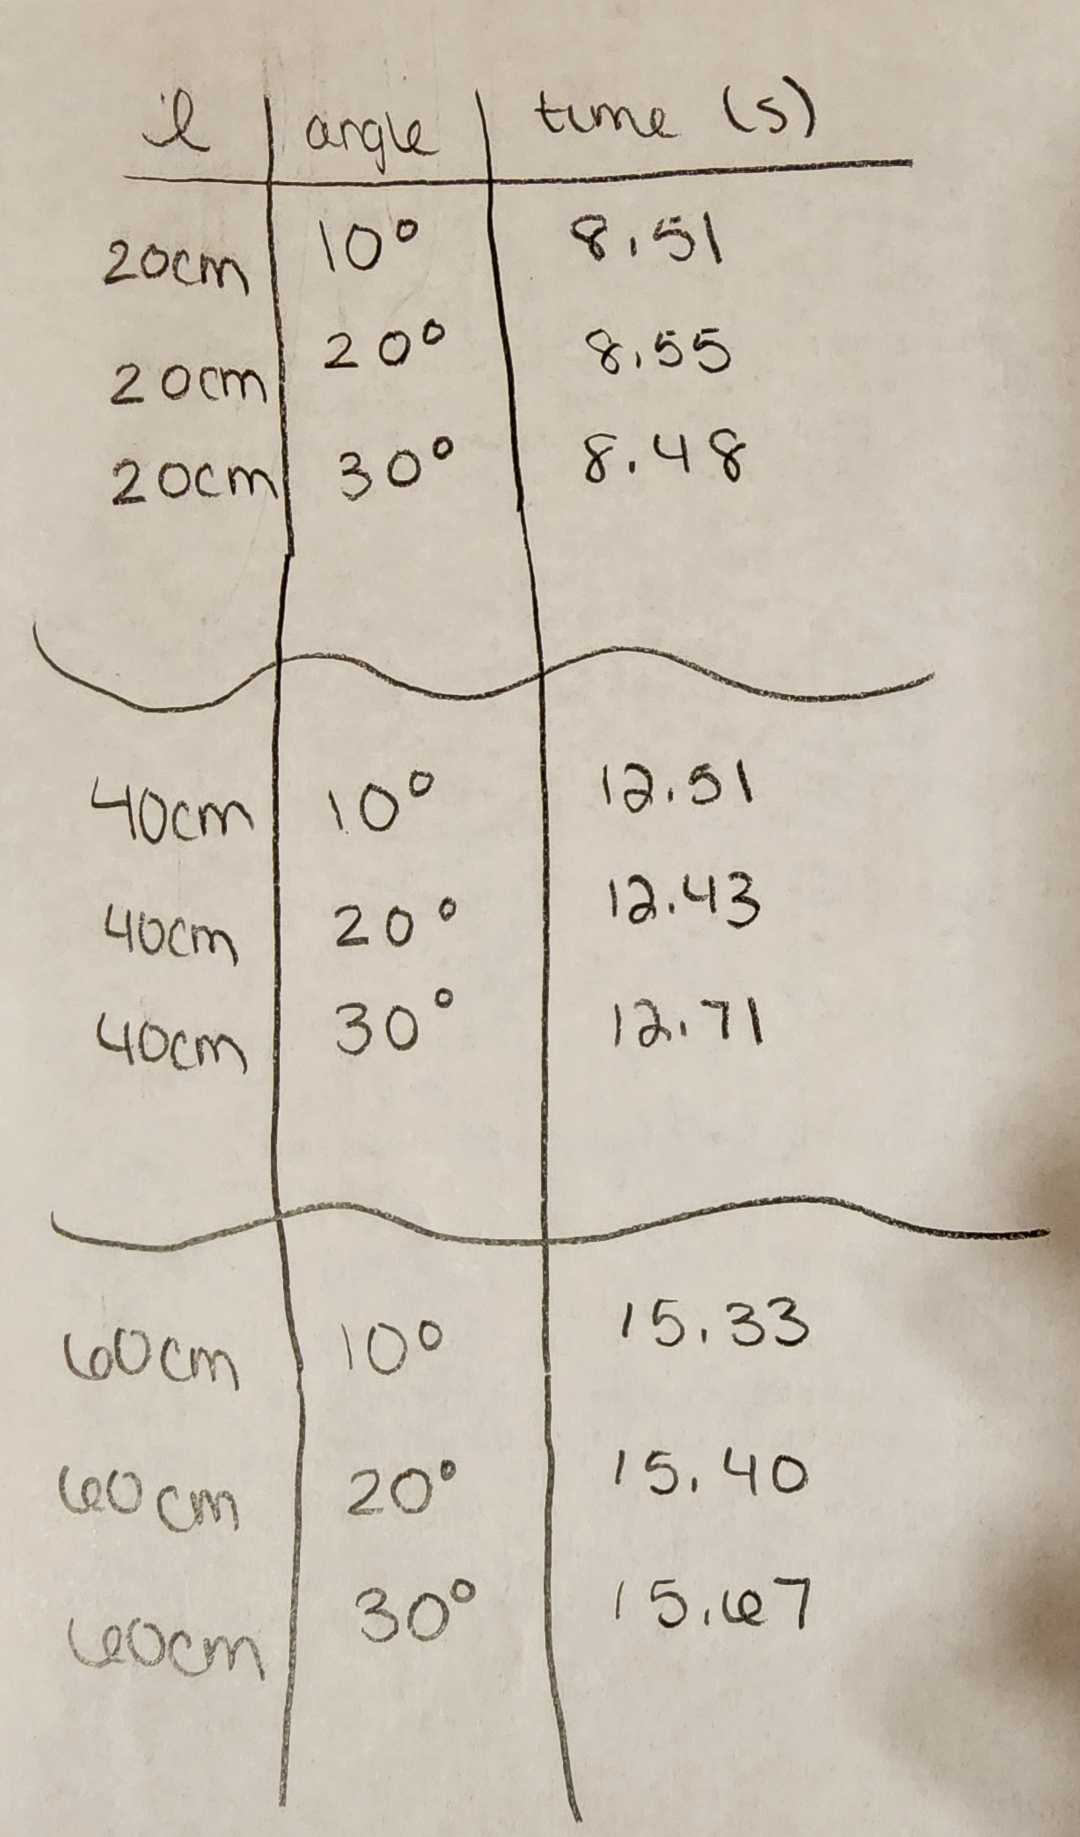 l angle time (s)
20cm 10° 8.51
20cm 20° 8.55
20cm 30° 8.48
40cm 10° 12.51
40cm 20° 12.43
40cm 30° 12.71
60cm 10° 15.33
60cm 20° 15.40
60cm 30° 15.67